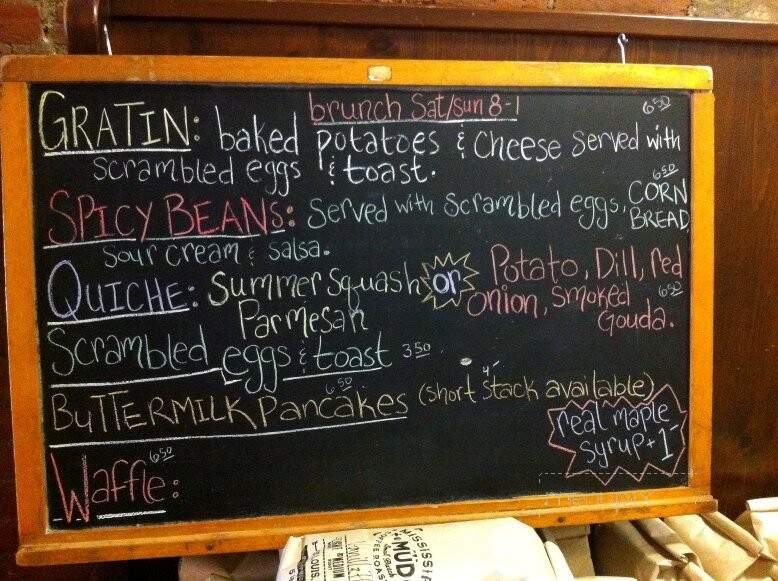 brunch Sat/Sun 8-1
GRATIN: baked potatoes & Cheese Served with 6 50
scrambled eggs & toast.
SPICY BEANS: Served with Scrambled eggs, CORN BREAD 6 50
sour cream & salsa.
QUICHE: Summer Squash or Potato, Dill, red
Parmesan onion, smoked 6 50
Gouda.
Scrambled eggs & toast 3 50
BUTTERMILK Pancakes 6 50 (short stack available) 4-
real maple
syrup + 1-
Waffle: 6 50
MISSISSI
MUD
COFFEE ROAS
LOUIS,